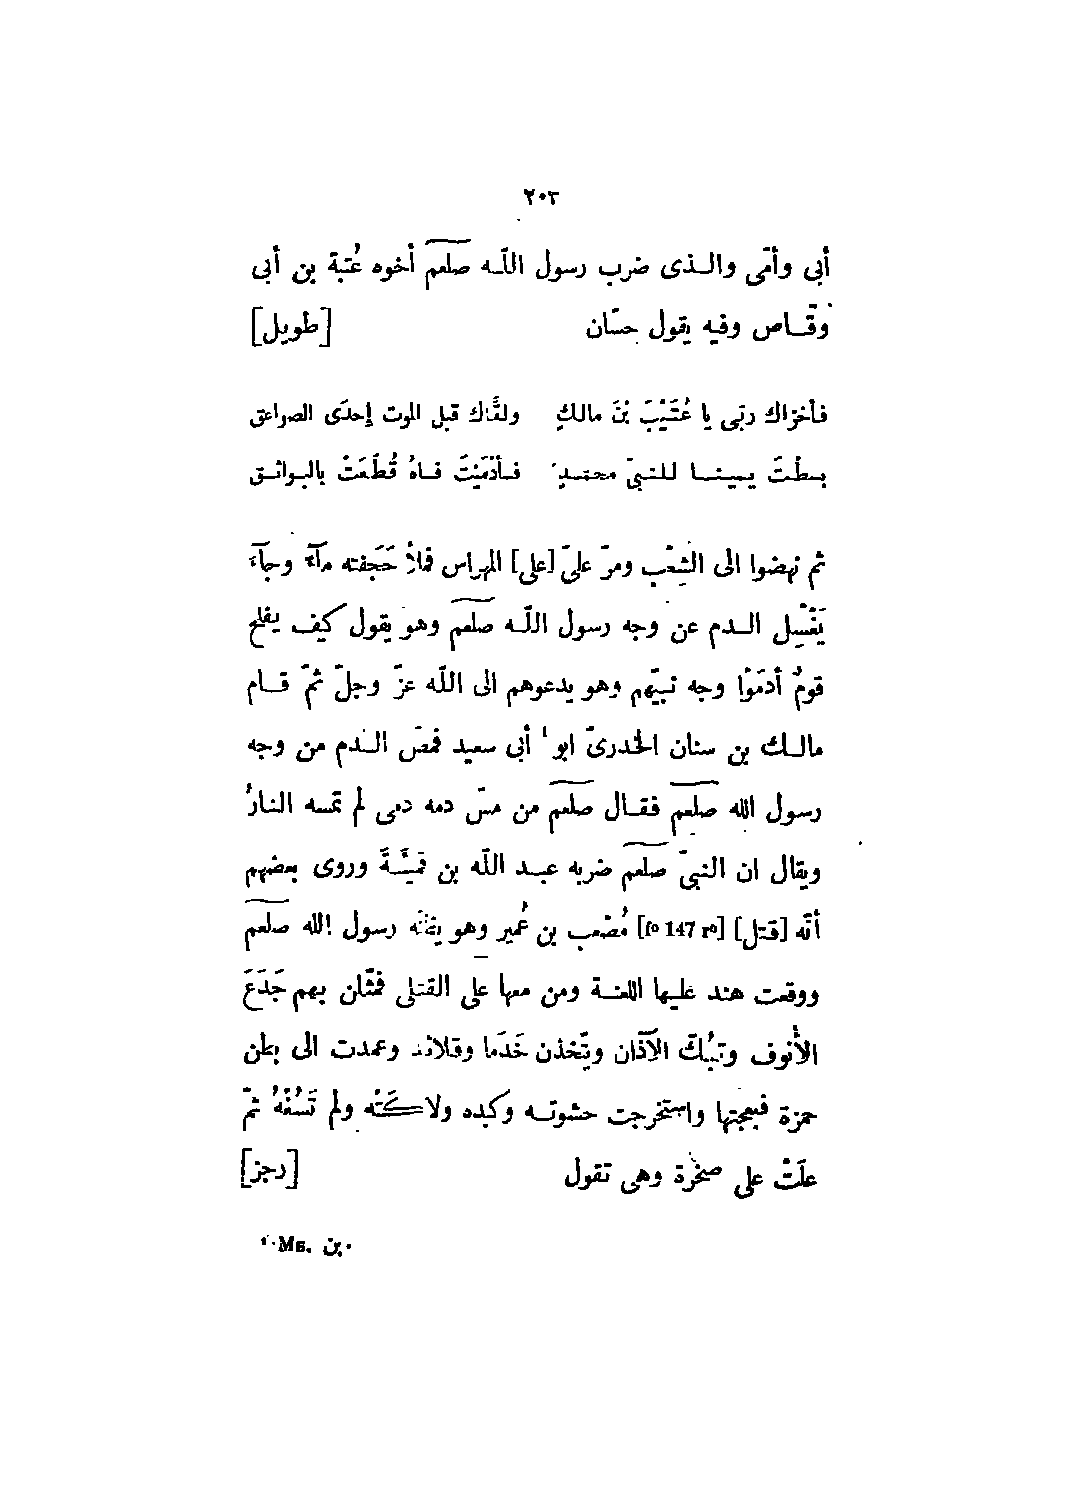 ٢٠٣
أبى وأمّى والــذى ضرب رسول اللّـه صلعم أخوه عُتبة بن أبى
وقّــاص وفيه يقول حسّان [طويل]
فأخزاك ربّى يا عُتَيْبَ بْنَ مالكٍ ولقَّاك قبل الموت إحدَى الصواعق
بسطْتَ يميـنـا للنبىّ محمّـدٍ فـأدْمَيْتَ فـاهُ قُطّعَتْ بالبوائـق
ثم نهضوا الى الشِعْب ومرّ علىّ [على] المهراس فملأ حَجَفته مآءً وجآءَ
يَغْسِل الــدم عن وجه رسول اللّـه صلعم وهو يقول كيف يفلح
قومٌ أدمَوْا وجه نبيّهم وهو يدعوهم الى اللّه عزّ وجلّ ثمّ قــام
مالــك بن سنان الخدرىّ ابو ١ أبى سعيد فمصّ الـدم من وجه
رسول الله صلعم فقــال صلعم من مسّ دمه دمى لم تمسه النارُ
ويقال ان النبىّ صلعم ضربه عبـد اللّه بن قميَّـةَ وروى بعضهم
أنّه [قتل] [fº 147 rº] مُصْعب بن عُمير وهو يظنّه رسول الله صلعم
ووقعت هند عليها اللعنــة ومن معها على القتلى فمثّلن بهم جَدَعَ
الأُنوف وتبُكّ الآذان ويتّخذن خَدَما وقلائد وعمدت الى بطن
حمزة فبعجتها واستخرجت حشوتــه وكبده ولاكَتْه ولم تَسُغْهُ ثمّ
علَتْ على صخرة وهى تقول [رجز]
١ Ms. بن.